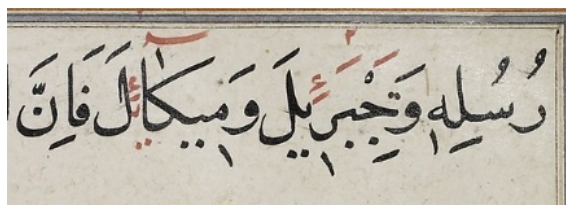 رُسُلِهٖ وَجِبْرِيلَ وَمِيكَالَ فَاِنَّ